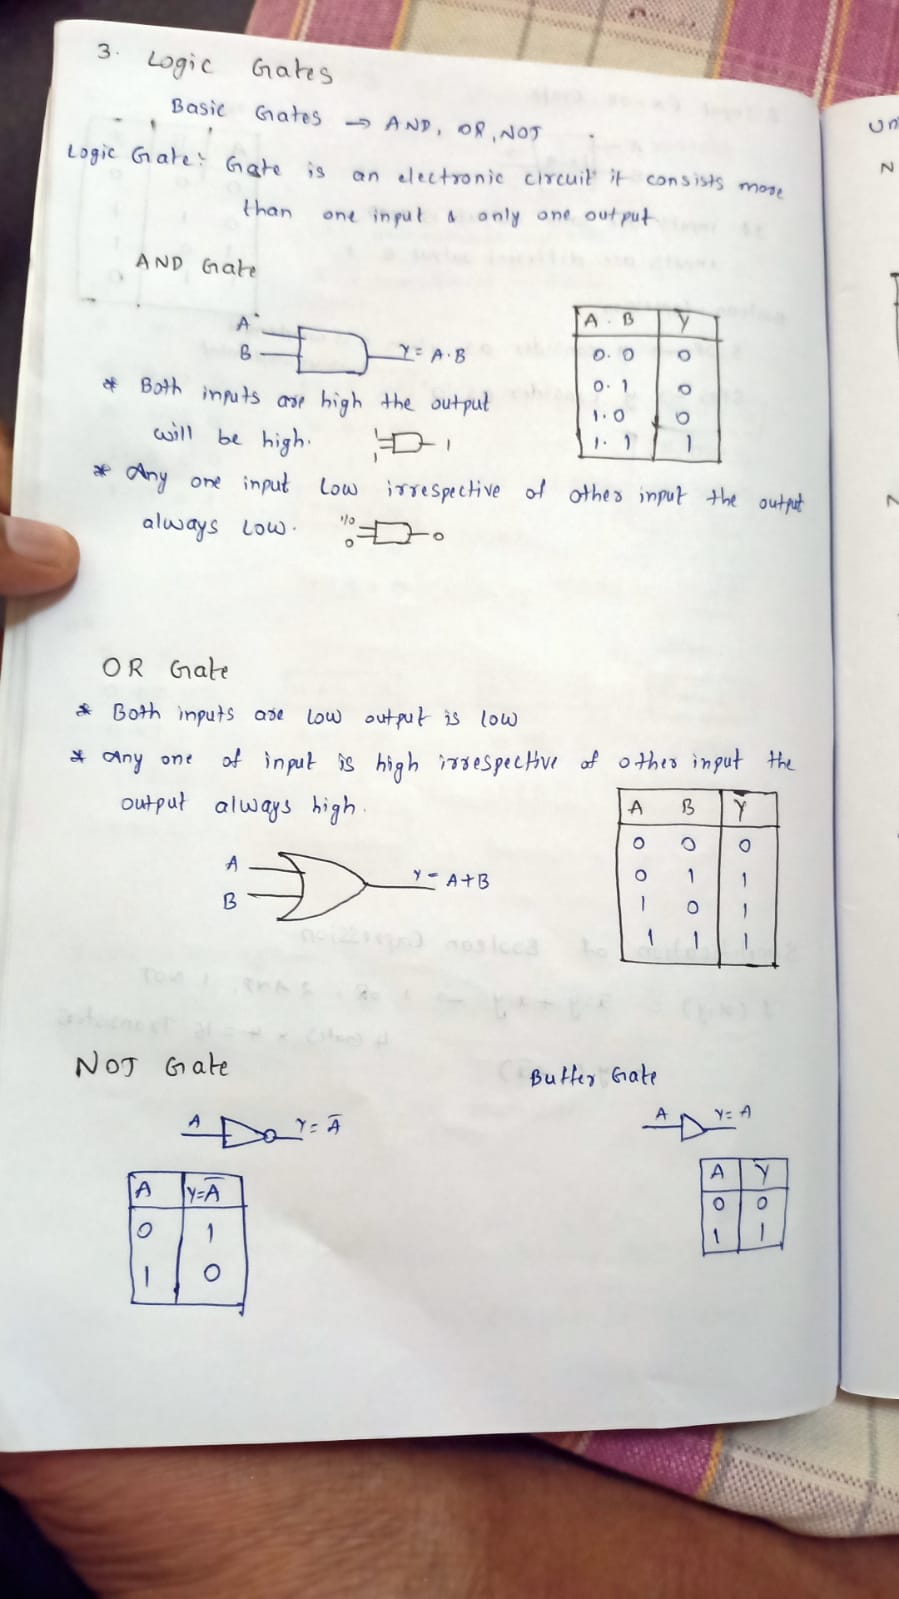 3. Logic Gates
Basic Gates → AND, OR, NOT
Logic Gate: Gate is an electronic circuit it consists more
than one input & only one output
AND Gate
A
B
Y = A.B
A . B Y
0.0 0
0.1 0
1.0 0
1.1 1
* Both inputs are high the output
will be high.
1
1
1
* Any one input low irrespective of other input the output
always low.
1/0
0
0
OR Gate
* Both inputs are low output is low
* Any one of input is high irrespective of other input the
output always high.
A
B
Y = A+B
A B Y
0 0 0
0 1 1
1 0 1
1 1 1
NOT Gate
A
Y = A̅
A Y=A̅
0 1
1 0
Buffer Gate
A
Y = A
A Y
0 0
1 1
Un
N